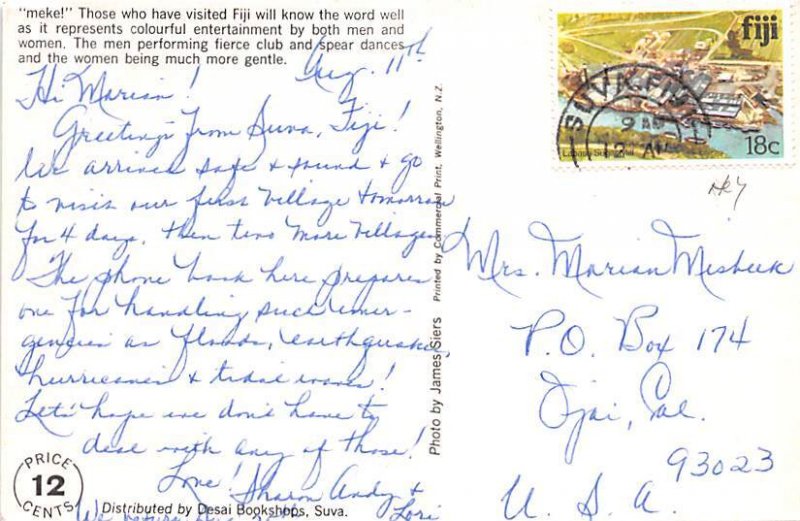 "meke!" Those who have visited Fiji will know the word well
as it represents colourful entertainment by both men and
women. The men performing fierce club and spear dances
and the women being much more gentle.
Aug. 11th
Hi Marian!
Greetings from Suva, Fiji!
We arrived safe & sound & go
to visit our first village tomorrow
for 4 days, then two more villages
The phone book here prepares
one for handling such emer-
gencies as floods, earthquakes,
hurricanes & tidal waves!
Let's hope we don't have to
deal with any of those!
Love! Sharon Andy &
Lori
PRICE
12
CENTS
Distributed by Desai Bookshops, Suva.
We return Aug 25th
Photo by James Siers
Printed by Commercial Print, Wellington, N.Z.
fiji
18c
SUVA, FIJI
9 AM
12 AU
Mrs. Marian Misbeek
P.O. Box 174
Ojai, Cal.
93023
U.S.A.